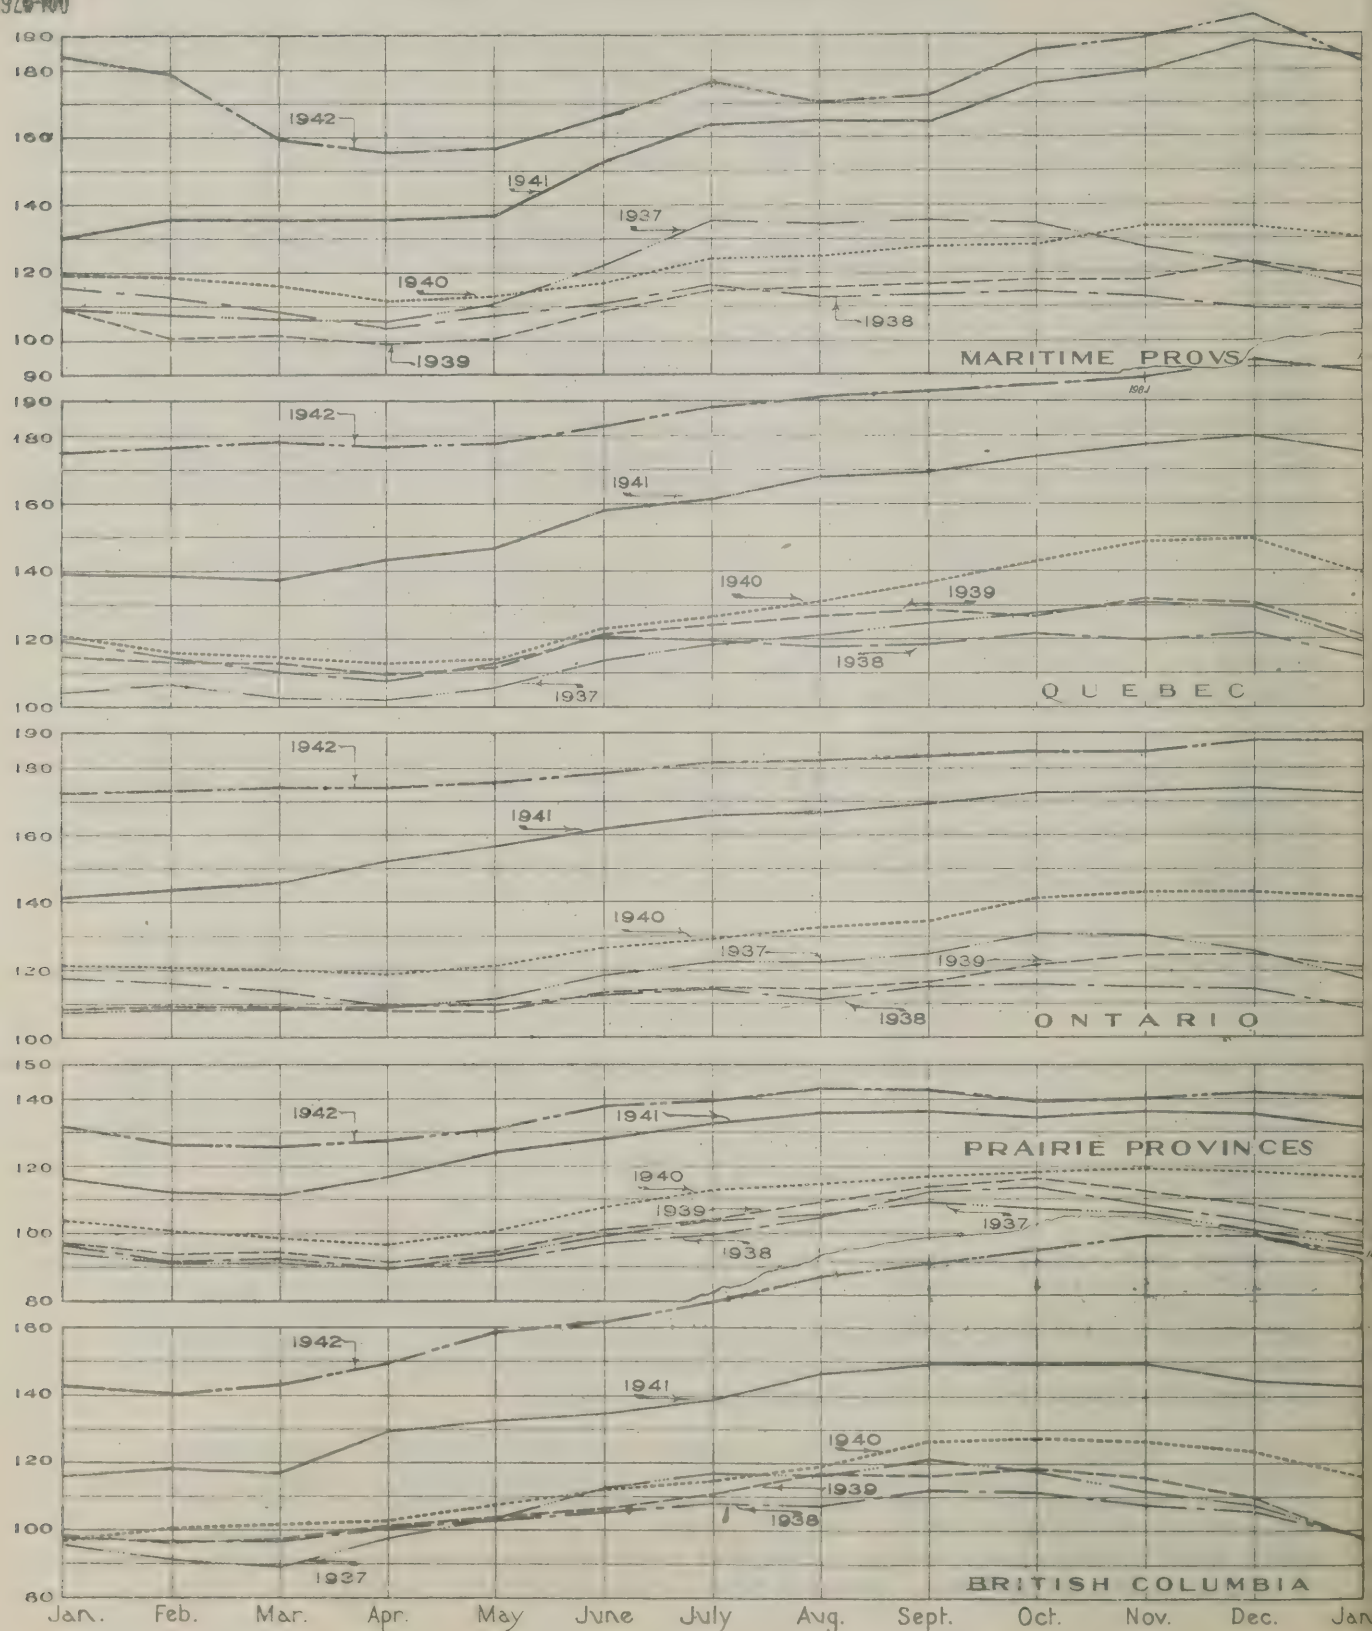 190
180
160
140
120
100
90
1942
1941
1937
1940
1938
1939
MARITIME PROVS
190
180
160
140
120
100
1942
1941
1940
1939
1938
1937
QUEBEC
190
180
160
140
120
100
1942
1941
1940
1937
1939
1938
ONTARIO
150
140
120
100
80
1942
1941
PRAIRIE PROVINCES
1940
1939
1937
1938
160
140
120
100
80
1942
1941
1940
1939
1938
1937
BRITISH COLUMBIA
Jan. Feb. Mar. Apr. May June July Aug. Sept. Oct. Nov. Dec. Jan